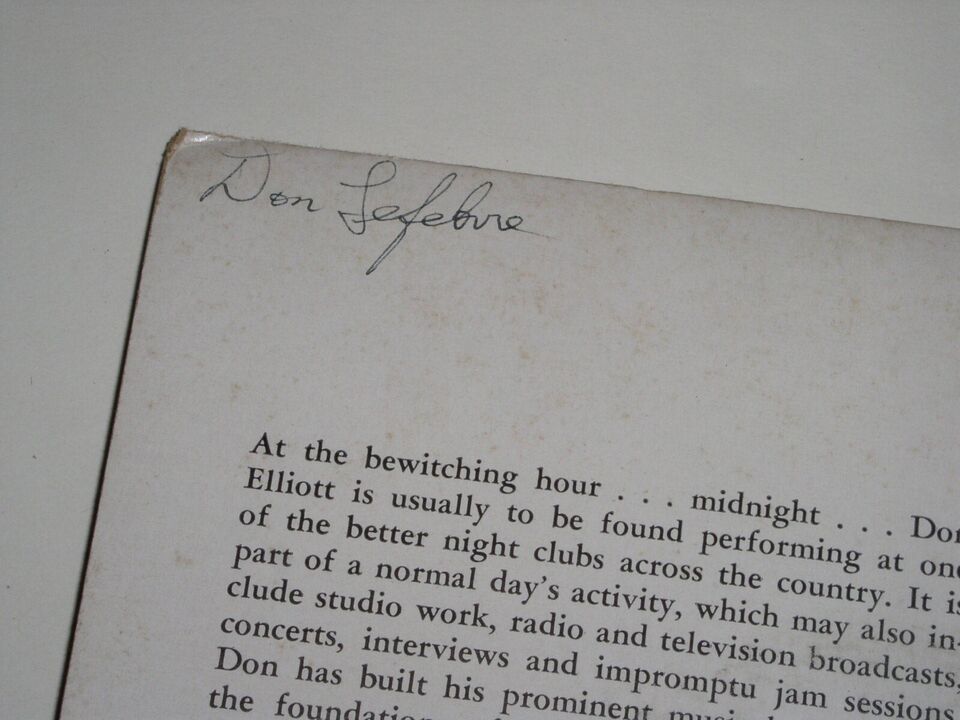 Don Lefebvre
At the bewitching hour . . . midnight . . . Don
Elliott is usually to be found performing at one
of the better night clubs across the country. It is
part of a normal day's activity, which may also in-
clude studio work, radio and television broadcasts,
concerts, interviews and impromptu jam sessions.
Don has built his prominent
the foundation